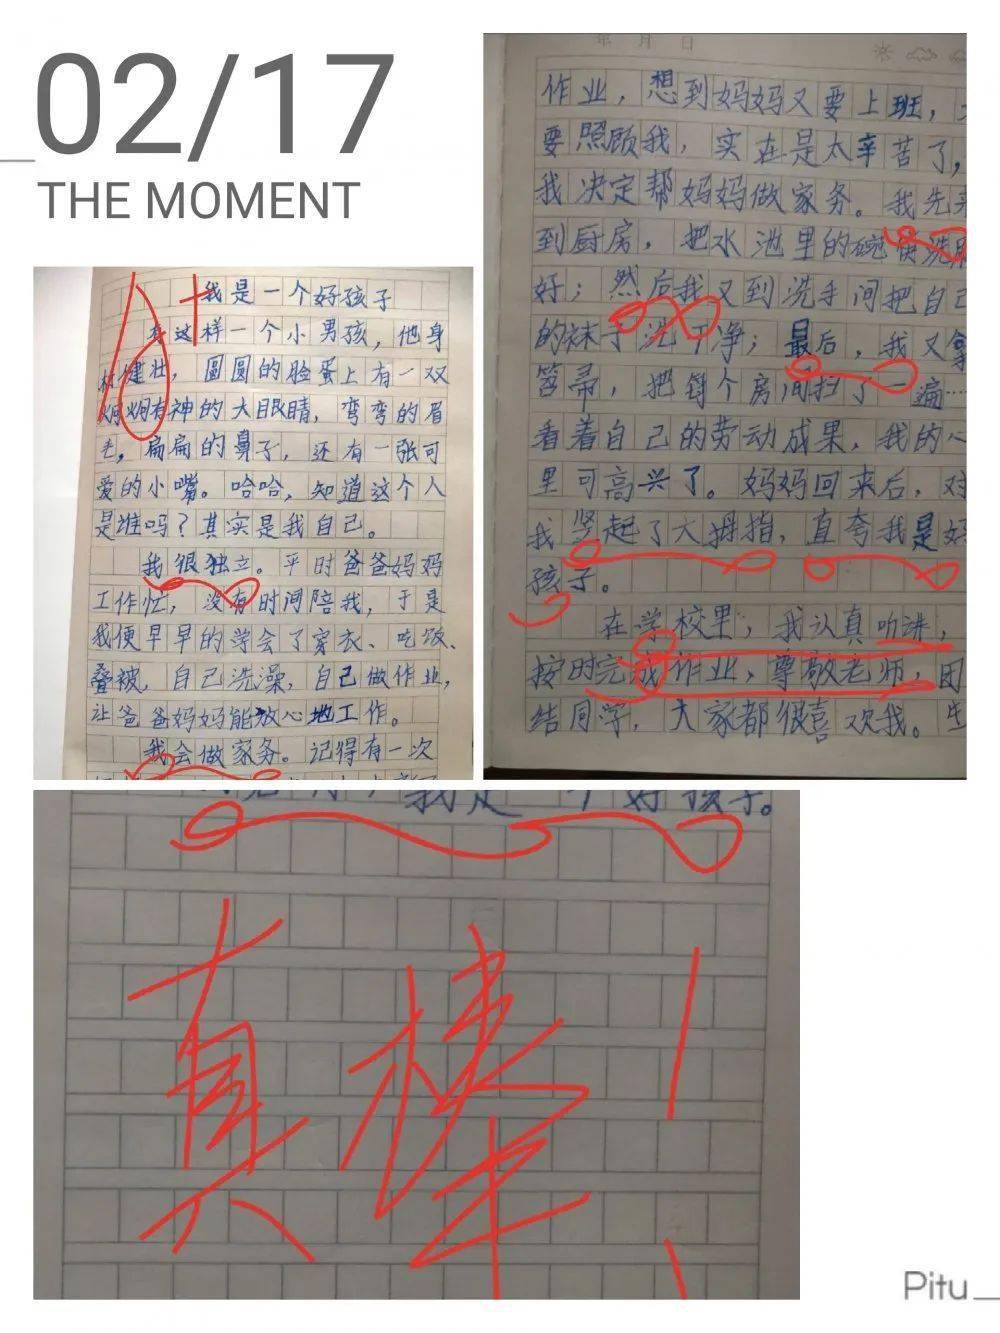 02/17
THE MOMENT
我是一个好孩子
有这样一个小男孩，他身
材健壮，圆圆的脸蛋上有一双
炯炯有神的大眼睛，弯弯的眉
毛，扁扁的鼻子，还有一张可
爱的小嘴。哈哈，知道这个人
是谁吗？其实是我自己。
我很独立。平时爸爸妈妈
工作忙，没有时间陪我，于是
我便早早的学会了穿衣、吃饭、
叠被，自己洗澡，自己做作业，
让爸爸妈妈能放心地工作。
我会做家务。记得有一次
作业，想到妈妈又要上班，
要照顾我，实在是太辛苦了，
我决定帮妈妈做家务。我先
到厨房，把水池里的碗快洗
好；然后我又到洗手间把自己
的袜子洗干净；最后，我又拿
笤帚，把每个房间扫了一遍……
看着自己的劳动成果，我的心
里可高兴了。妈妈回来后，对
我竖起了大拇指，直夸我是好
孩子。
在学校里，我认真听讲，
按时完成作业，尊敬老师，团
结同学，大家都很喜欢我。
我是一个好孩子。
真棒！
Pitu